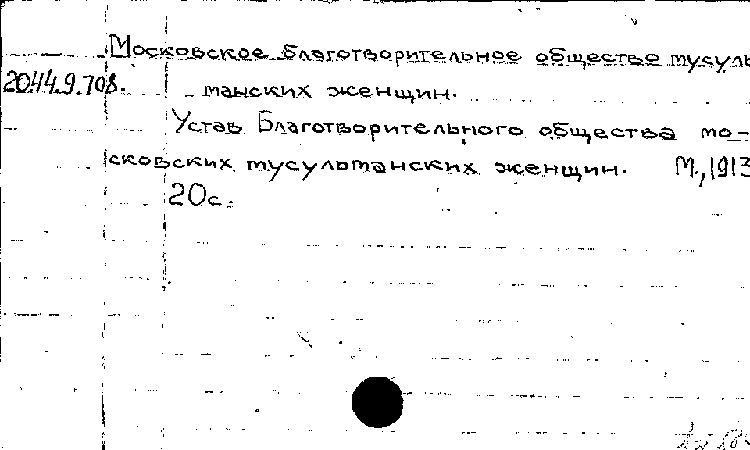 Московское благотворительное общество мусуль
2044.9.708. манских женщин.
Устав Благотворительного общества мо-
сковских мусульманских женщин. М., 1913
20с.